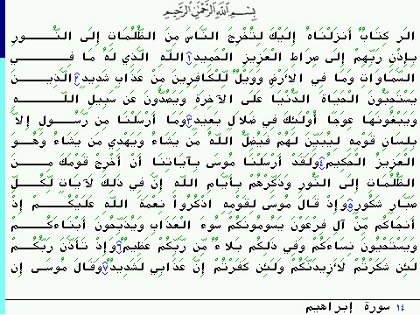 بِسْمِ اللَّهِ الرَّحْمَٰنِ الرَّحِيمِ
الَر كِتَابٌ أَنزَلْنَاهُ إِلَيْكَ لِتُخْرِجَ النَّاسَ مِنَ الظُّلُمَاتِ إِلَى النُّورِ
بِإِذْنِ رَبِّهِمْ إِلَى صِرَاطِ الْعَزِيزِ الْحَمِيدِ ١ اللَّهِ الَّذِي لَهُ مَا فِي
السَّمَاوَاتِ وَمَا فِي الأَرْضِ وَوَيْلٌ لِّلْكَافِرِينَ مِنْ عَذَابٍ شَدِيدٍ ٢ الَّذِينَ
يَسْتَحِبُّونَ الْحَيَاةَ الدُّنْيَا عَلَى الآخِرَةِ وَيَصُدُّونَ عَن سَبِيلِ اللَّهِ
وَيَبْغُونَهَا عِوَجًا أُوْلَئِكَ فِي ضَلاَلٍ بَعِيدٍ ٣ وَمَا أَرْسَلْنَا مِن رَّسُولٍ إِلاَّ
بِلِسَانِ قَوْمِهِ لِيُبَيِّنَ لَهُمْ فَيُضِلُّ اللَّهُ مَن يَشَاءُ وَيَهْدِي مَن يَشَاءُ وَهُوَ
الْعَزِيزُ الْحَكِيمُ ٤ وَلَقَدْ أَرْسَلْنَا مُوسَى بِآيَاتِنَا أَنْ أَخْرِجْ قَوْمَكَ مِنَ
الظُّلُمَاتِ إِلَى النُّورِ وَذَكِّرْهُمْ بِأَيَّامِ اللَّهِ إِنَّ فِي ذَلِكَ لآيَاتٍ لِّكُلِّ
صَبَّارٍ شَكُورٍ ٥ وَإِذْ قَالَ مُوسَى لِقَوْمِهِ اذْكُرُواْ نِعْمَةَ اللَّهِ عَلَيْكُمْ إِذْ
أَنجَاكُم مِّنْ آلِ فِرْعَوْنَ يَسُومُونَكُمْ سُوءَ الْعَذَابِ وَيُذَبِّحُونَ أَبْنَاءَكُمْ
وَيَسْتَحْيُونَ نِسَاءَكُمْ وَفِي ذَلِكُم بَلاءٌ مِّن رَّبِّكُمْ عَظِيمٌ ٦ وَإِذْ تَأَذَّنَ رَبُّكُمْ
لَئِن شَكَرْتُمْ لأَزِيدَنَّكُمْ وَلَئِن كَفَرْتُمْ إِنَّ عَذَابِي لَشَدِيدٌ ٧ وَقَالَ مُوسَى إِن
١٤ سورة إبراهيم